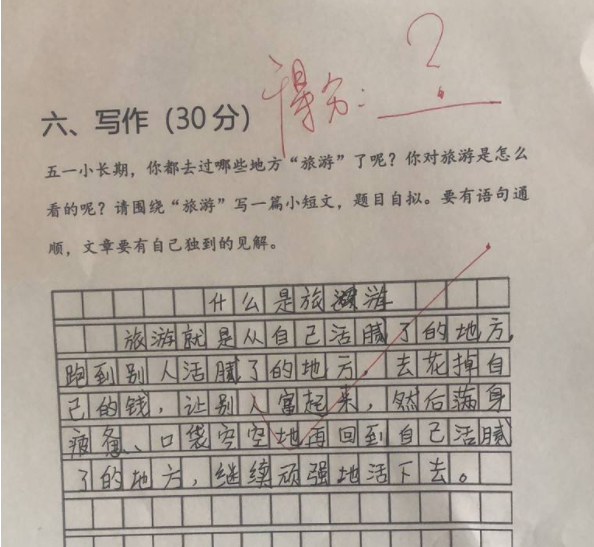 得分：?
六、写作（30分）
五一小长期，你都去过哪些地方“旅游”了呢？你对旅游是怎么
看的呢？请围绕“旅游”写一篇小短文，题目自拟。要有语句通
顺，文章要有自己独到的见解。
什么是旅游
旅游就是从自己活腻了的地方，
跑到别人活腻了的地方，去花掉自
己的钱，让别人富起来，然后满身
疲惫、口袋空空地再回到自己活腻
了的地方，继续顽强地活下去。